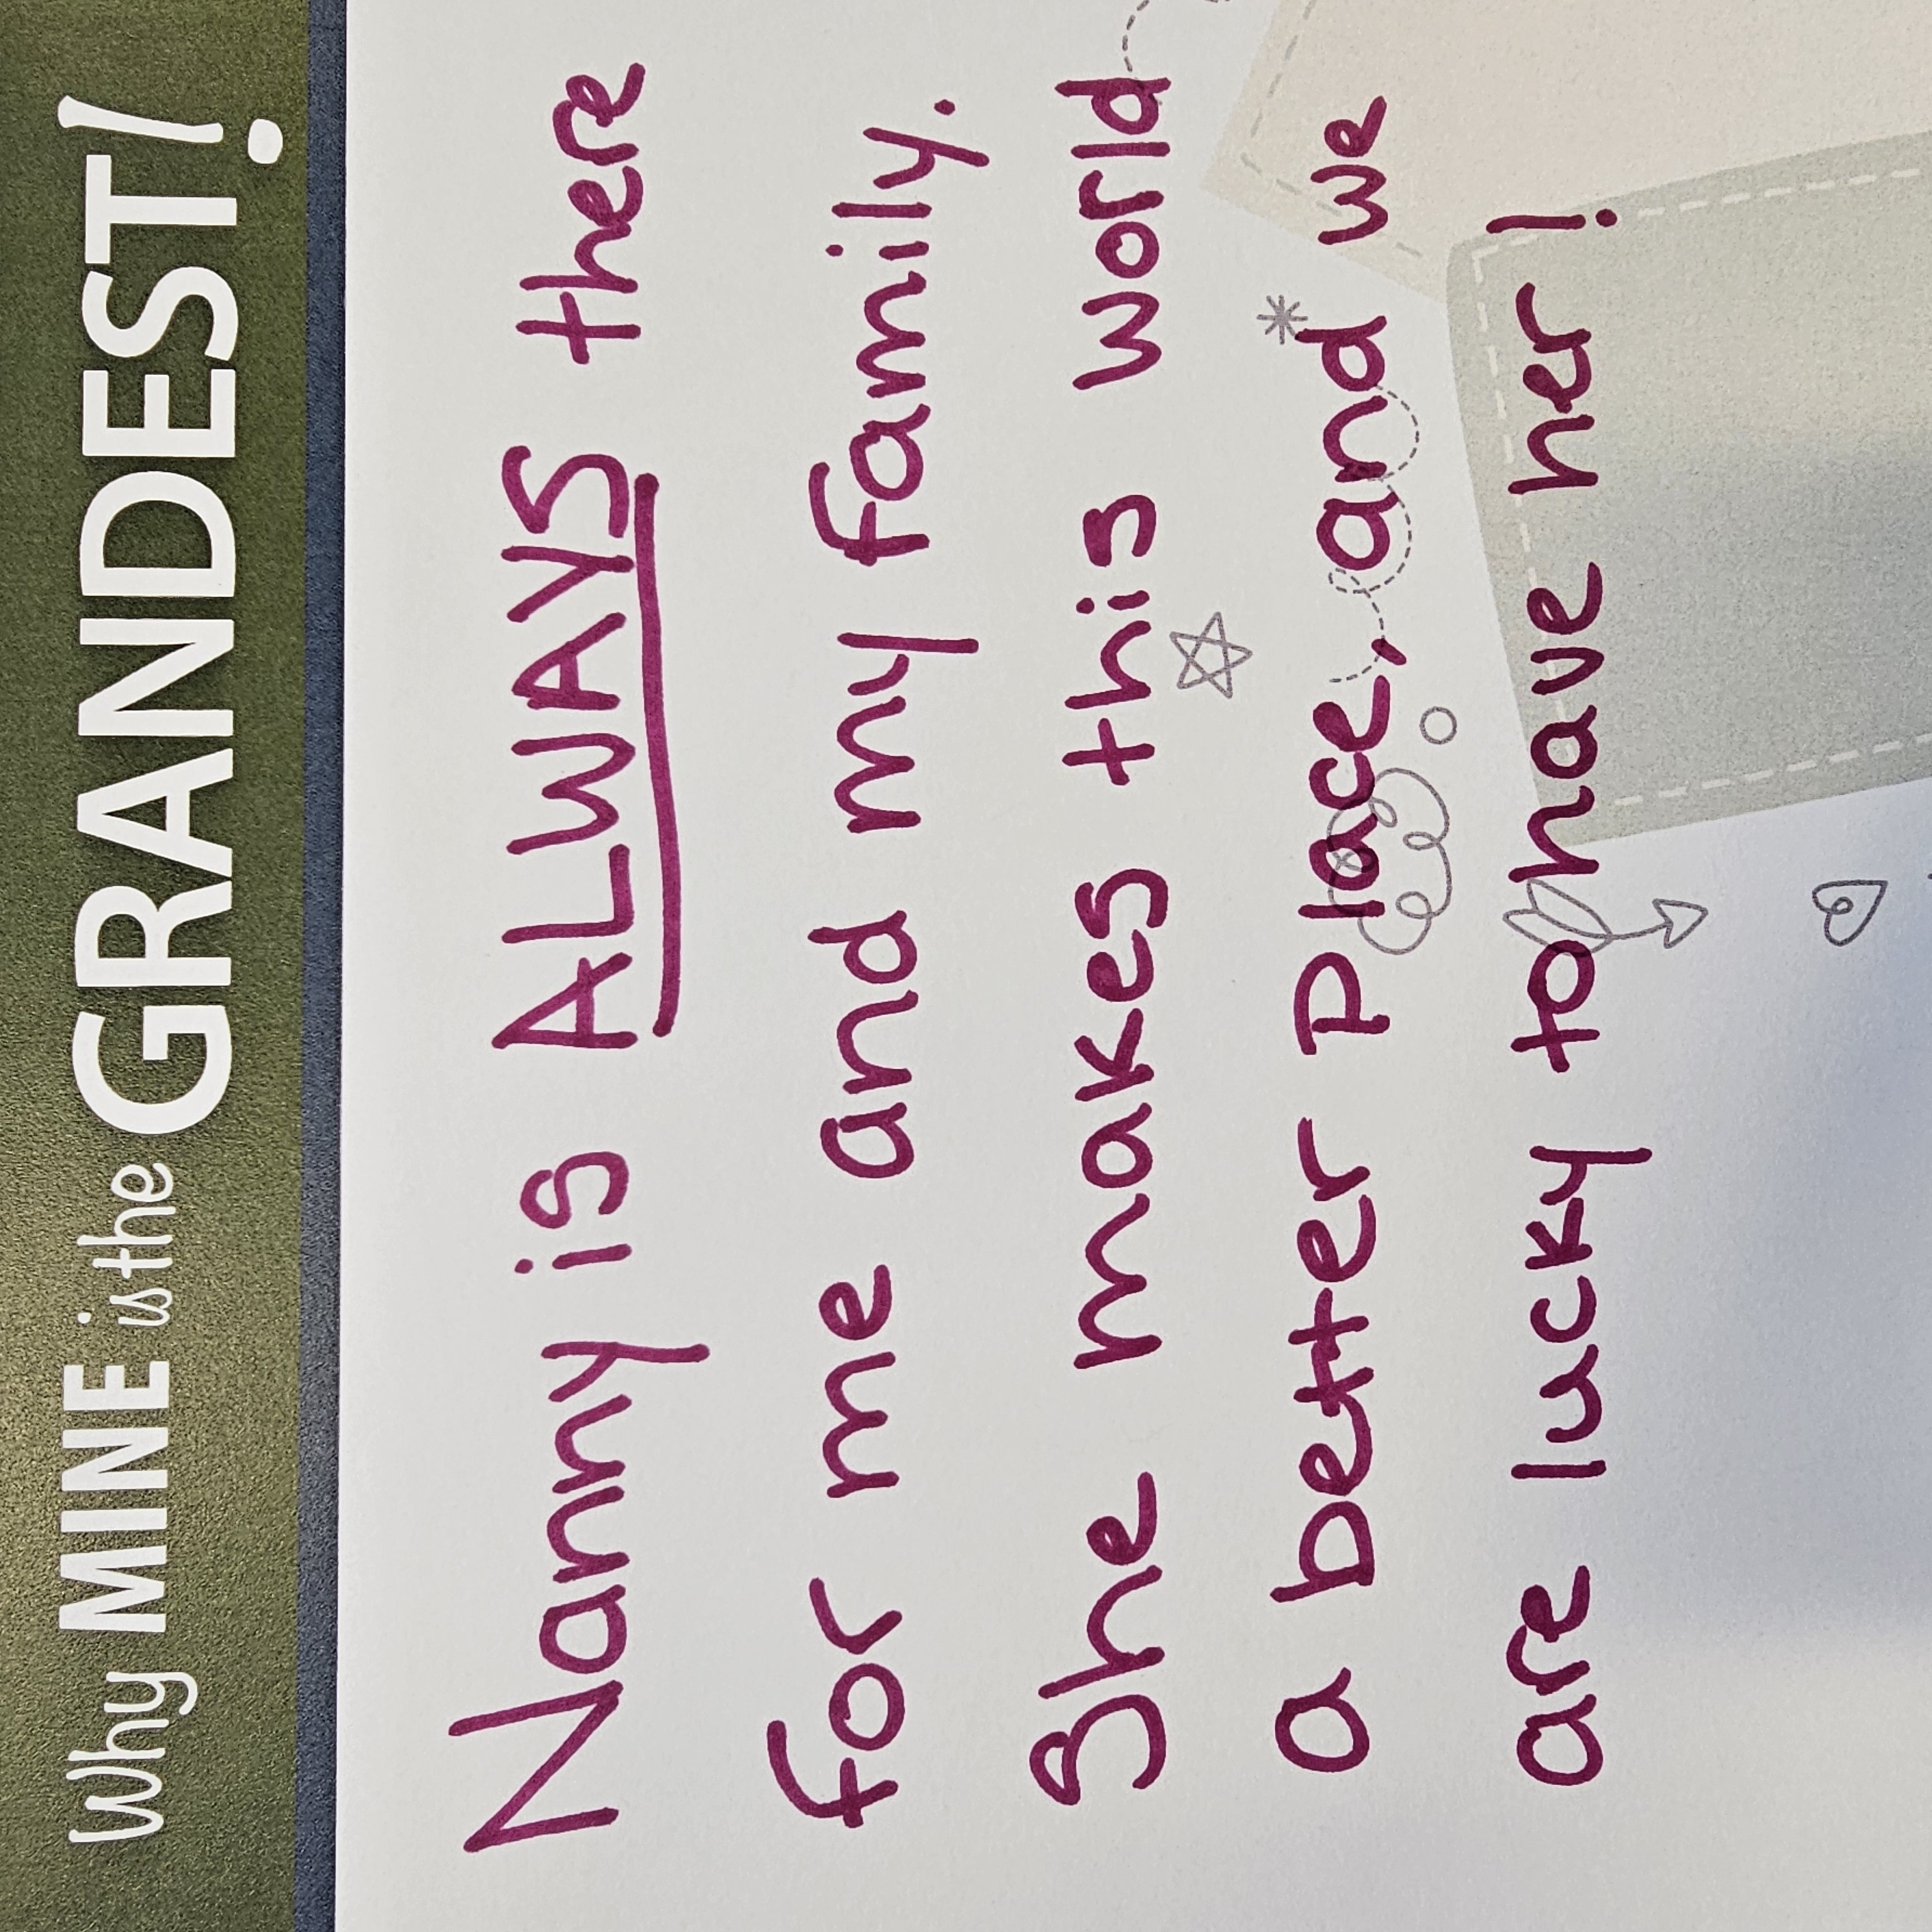 Why MINE is the GRANDEST!
Nanny is ALWAYS there
for me and my family.
She makes this world
a better place, and we
are lucky to have her!